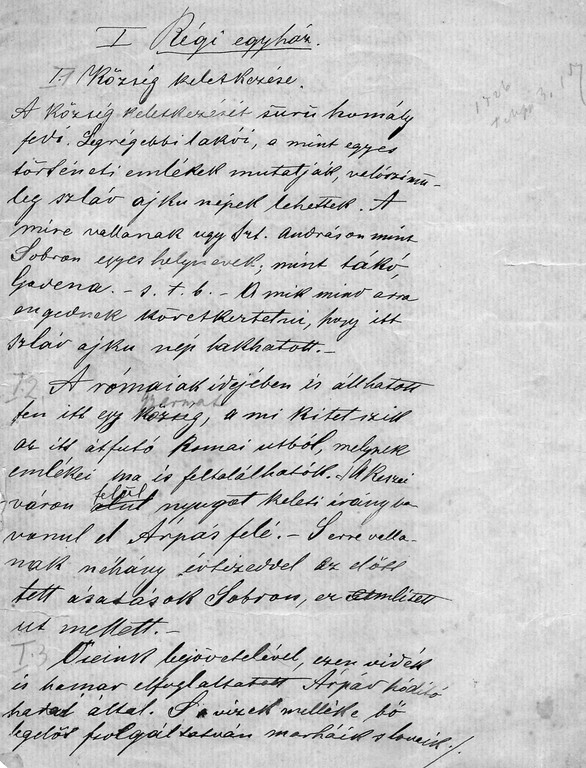 I Régi egyház.
I.1 Község keletkezése.
A község keletkezését sürü homály
fedi. Legrégebbi lakói, a mint egyes
történeti emlékek mutatják, valószinü-
leg szláv ajku népek lehettek. A
mire vallanak ugy Szt. Andráson mint
Sobron egyes helynevek, mint tákó,
Gadena. - s. t. b. - A mik mind arra
engednek következtetni, hogy itt
szláv ajku nép lakhatott. -
I.2 A rómaiak idejében is állhatott
fen itt egy község, a mi kitetszik
az itt átfutó Romai utból, melynek
emlékei ma is feltalálhatók. A Keszei
felül
váron alul nyugot keleti irányba
vonul el Árpás felé. - S erre valla-
nak néhány évtizeddel ez előtt
tett ásatások Sobron, ez emlitett
ut mellett. -
I.3 Őseink bejövetelével, ezen vidék
is hamar elfoglaltatott Árpád hóditó
hadai által. S a vizek melléke bő
legelőt szolgáltatván marháik
1726